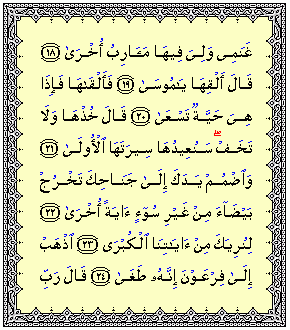 غَنَمِى وَلِىَ فِيهَا مَـَٔارِبُ أُخْرَىٰ ١٨
قَالَ أَلْقِهَا يَـٰمُوسَىٰ ١٩ فَأَلْقَىٰهَا فَإِذَا
هِىَ حَيَّةٌ تَسْعَىٰ ٢٠ قَالَ خُذْهَا وَلَا
تَخَفْ ۖ سَنُعِيدُهَا سِيرَتَهَا ٱلْأُولَىٰ ٢١
وَٱضْمُمْ يَدَكَ إِلَىٰ جَنَاحِكَ تَخْرُجْ
بَيْضَآءَ مِنْ غَيْرِ سُوٓءٍ ءَايَةً أُخْرَىٰ ٢٢
لِنُرِيَكَ مِنْ ءَايَـٰتِنَا ٱلْكُبْرَى ٢٣ ٱذْهَبْ
إِلَىٰ فِرْعَوْنَ إِنَّهُۥ طَغَىٰ ٢٤ قَالَ رَبِّ